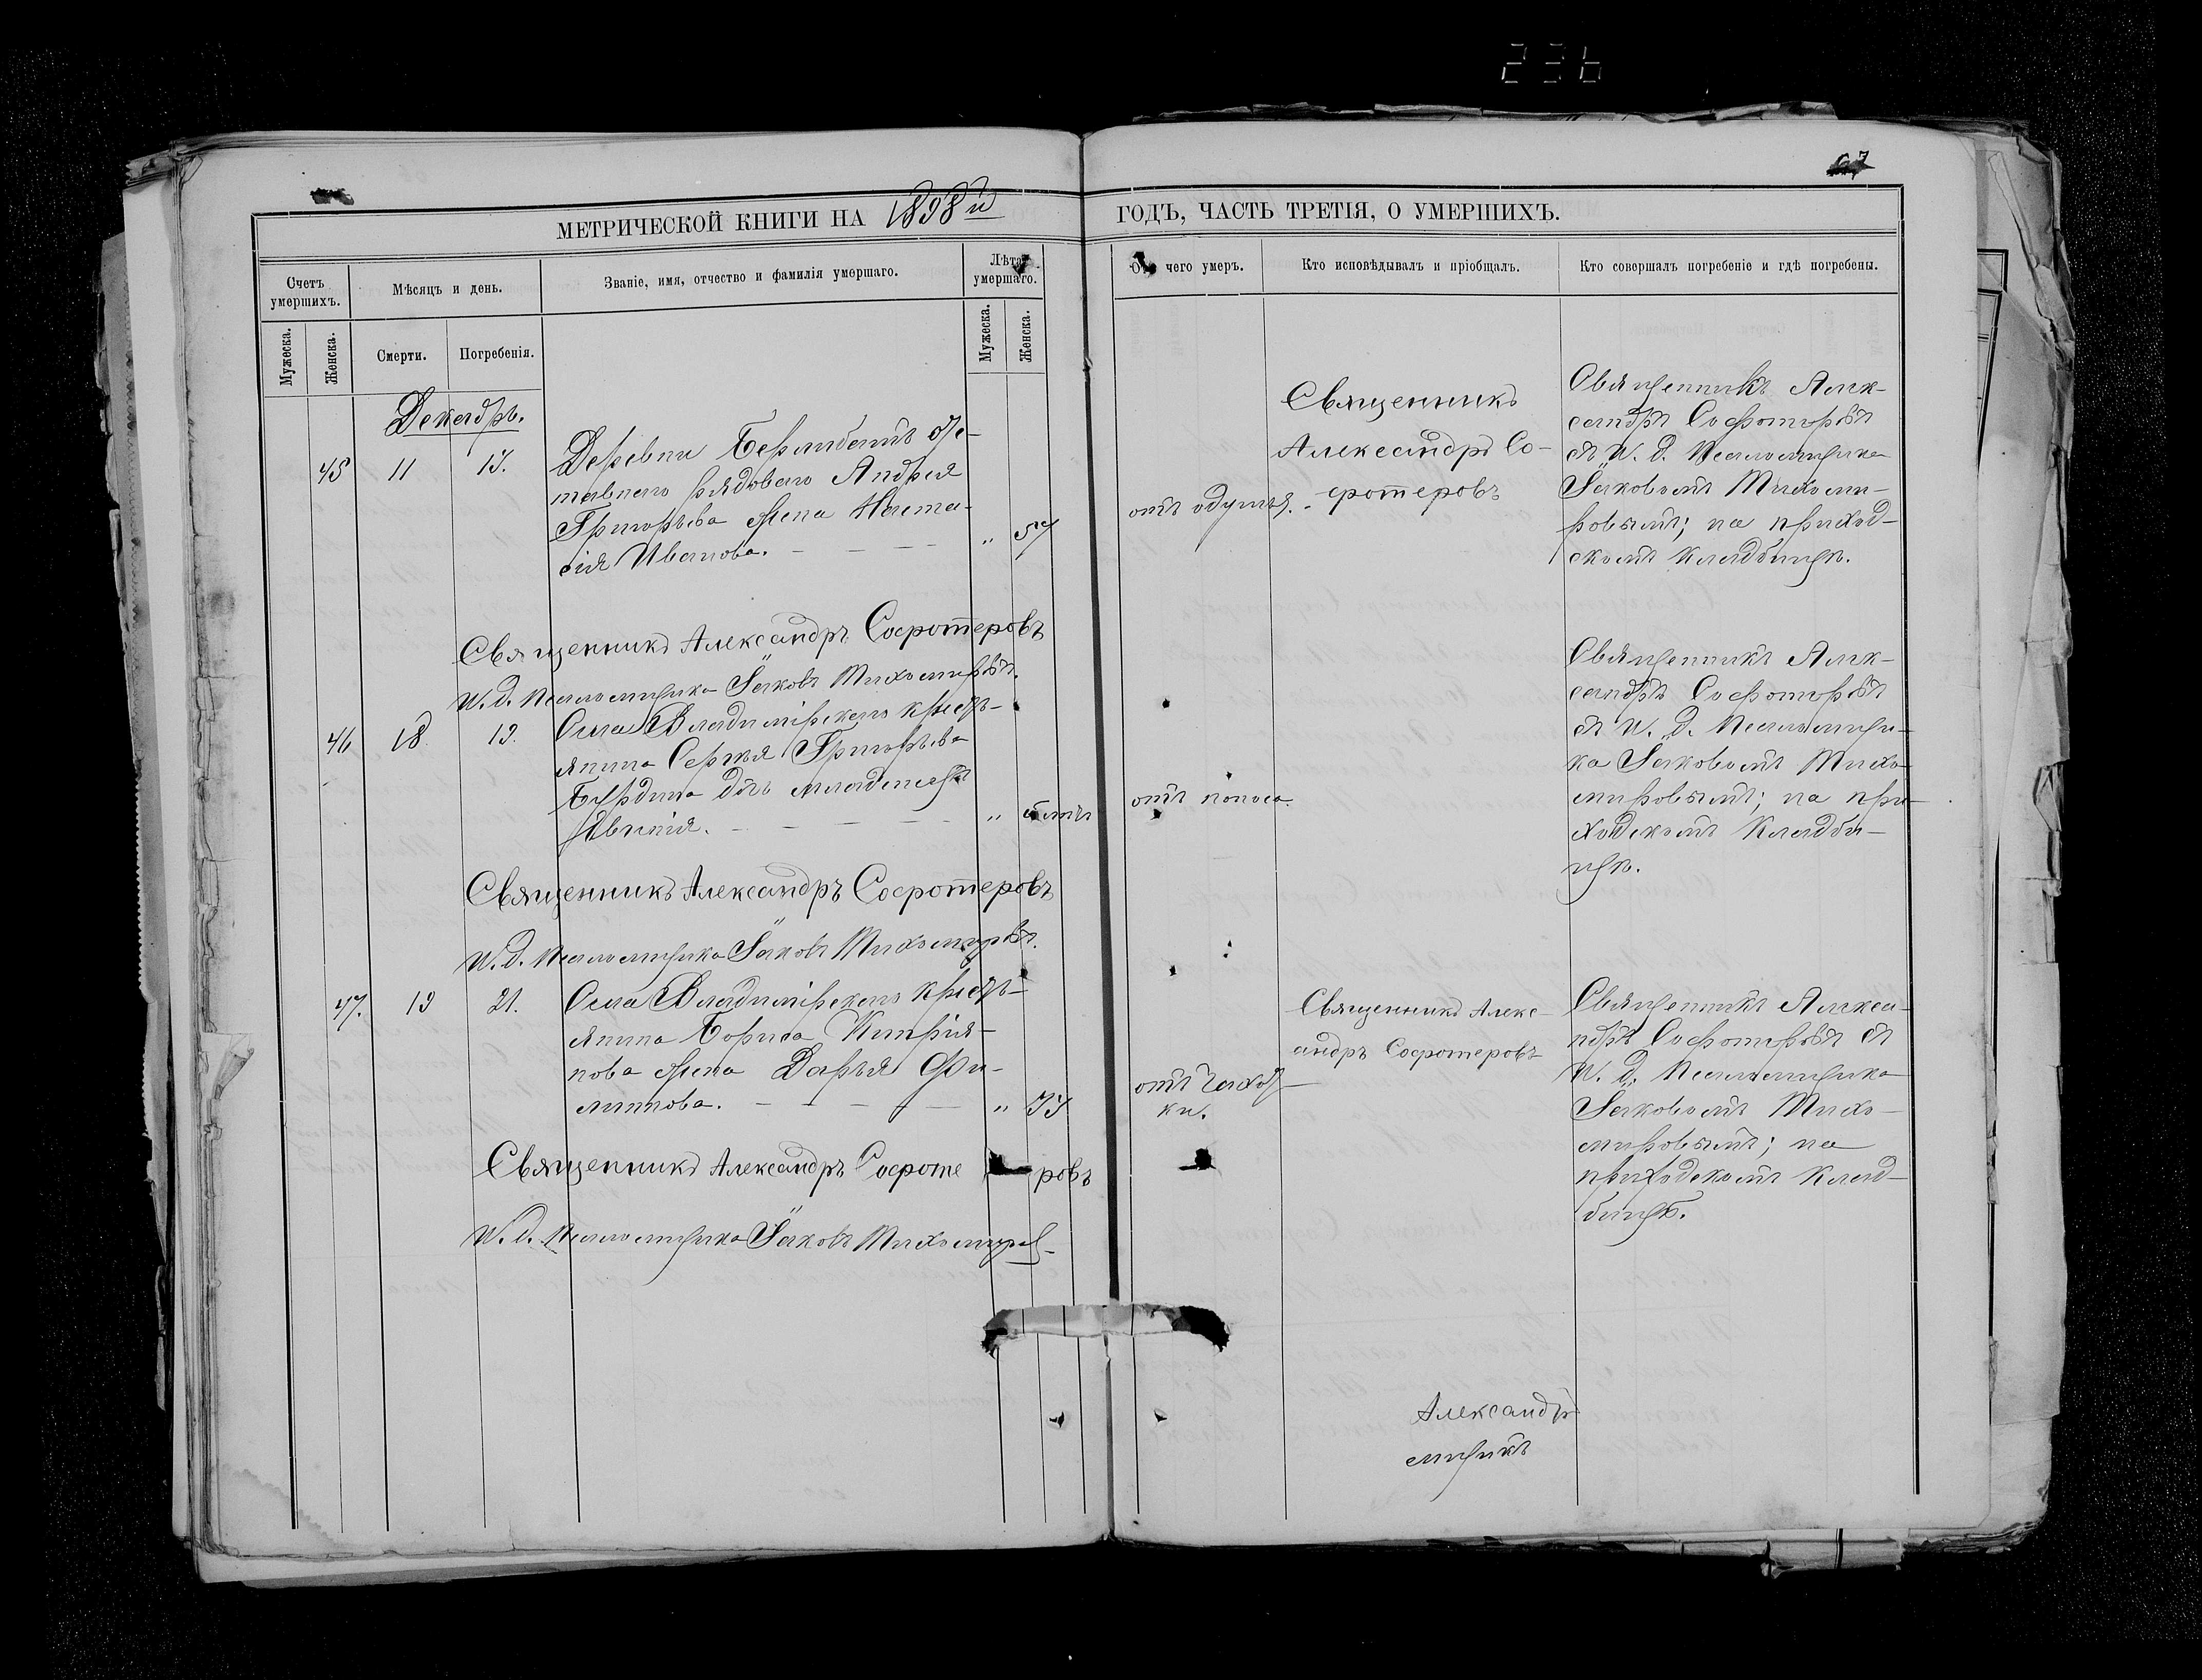 236
67
МЕТРИЧЕСКОЙ КНИГИ НА 1898й ГОДЪ, ЧАСТЬ ТРЕТІЯ, О УМЕРШИХЪ.
Счетъ умершихъ.
Мѣсяцъ и день.
Званіе, имя, отчество и фамилія умершаго.
Лѣта умершаго.
Отъ чего умеръ.
Кто исповѣдывалъ и пріобщалъ.
Кто совершалъ погребеніе и гдѣ погребены.
Мужеска.
Женска.
Смерти.
Погребенія.
Мужеска.
Женска.
Декабрь.
45 11 13.
Деревни От-
тавнаго рядоваго Андрея
Григорьева жена Наста-
сія Иванова. " 57
отъ одушья.
Священникъ
Александръ Со-
фотеровъ
Священникъ Алек-
сандръ Софотеровъ
съ И. д. Псаломщика
Яковомъ Тихоми-
ровымъ; на приход-
скомъ кладбищѣ.
Священникъ Александръ Софотеровъ
И. д. Псаломщика Яковъ Тихомировъ.
46 18 19.
Села Владимірскаго кресть-
янина Сергѣя Григорьева
дочь младенецъ
"
отъ поноса.
Священникъ Алек-
сандръ Софотеровъ
съ И. д. Псаломщи-
ка Яковомъ Тихо-
мировымъ; на при-
ходскомъ Кладби-
щѣ.
Священникъ Александръ Софотеровъ
И. д. Псаломщика Яковъ Тихомировъ.
47. 19 21.
Села Владимірскаго кресть-
янина Бориса Кипрія-
нова жена Дарья Фи-
липпова. "
отъ чахот-
ки.
Священникъ Алекс-
андръ Софотеровъ
Священникъ Алекса-
ндръ Софотеровъ съ
И. д. Псаломщика
Яковомъ Тихо-
мировымъ; на
приходскомъ Клад-
бищѣ.
Священникъ Александръ Софоте ровъ
И. д. Псаломщика Яковъ Тихомиров
Александръ
мщикъ